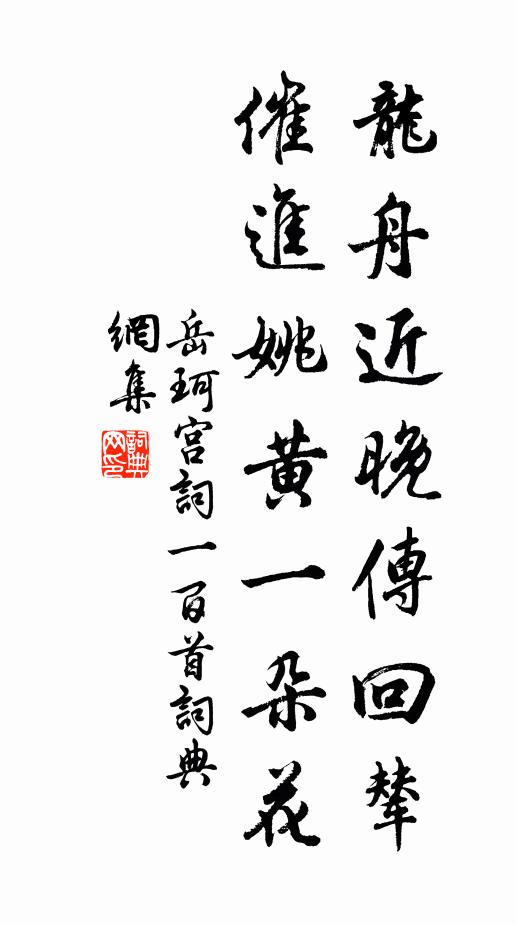 龍舟近晚傳回輦
催進姚黃一朵花
岳珂宮詞一百首詞典
網集
詞典
网印